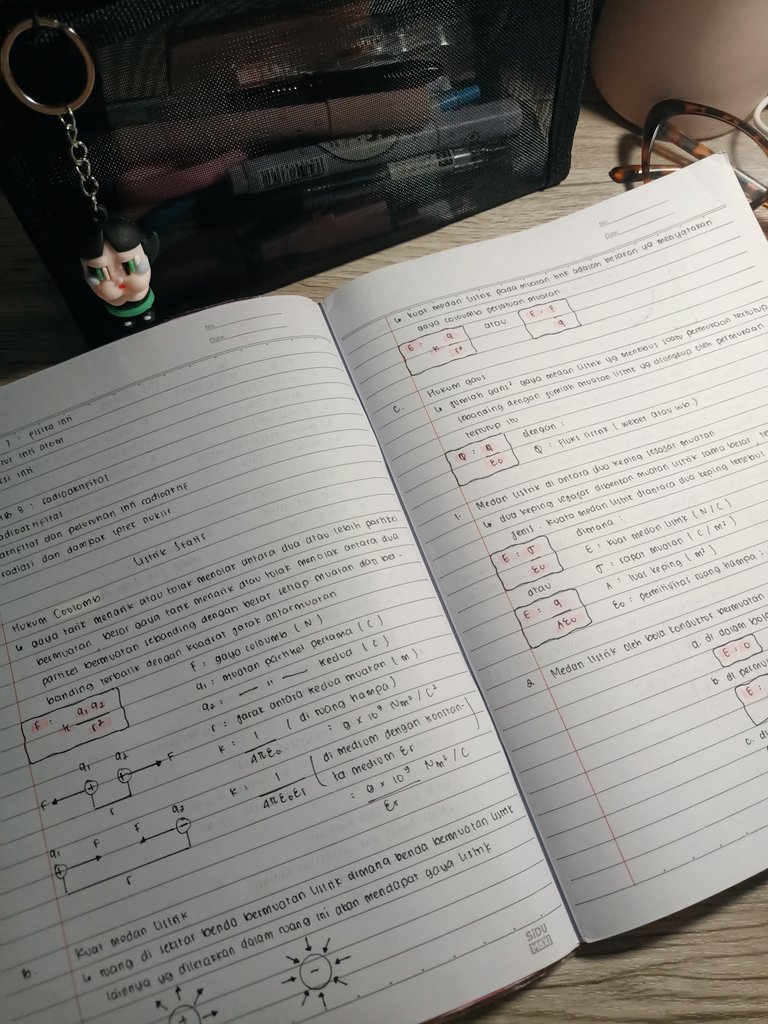 No.
Date:
3 : fisika inti
tur inti atom
si inti
B 8 : radioaktifitas
radioaktifitas
aktifitas dan peluruhan inti radioaktif
radiasi dan dampak iptek nuklir
Listrik Statis
Hukum Coulomb
↳ gaya tarik menarik atau tolak menolak antara dua atau lebih partikel
bermuatan, besar gaya tarik menarik atau tolak menolak antara dua
partikel bermuatan sebanding dengan besar setiap muatan dan ber-
banding terbalik dengan kuadrat jarak antarmuatan
F = k q1 q2 / r²
F : gaya coloumb ( N )
q1 : muatan partikel pertama ( C )
q2 : — " — kedua ( C )
r : jarak antara kedua muatan ( m )
k : 1 / 4πε0 ( di ruang hampa )
= 9 x 10⁹ Nm² / C²
k = 1 / 4πε0εr ( di medium dengan konstan-
ta medium εr )
= 9 x 10⁹ / εr Nm² / C
q1 q2 F
F r
q2
q1 F F
r
B. Kuat medan listrik
↳ ruang di sekitar benda bermuatan listrik dimana benda bermuatan listrik
lainnya yg diletakkan dalam ruang ini akan mendapat gaya listrik
+ -
SiDU
MAXI
No.
Date:
↳ kuat medan listrik pada muatan titik adalah besaran yg menyatakan
gaya coloumb persatuan muatan
E = k q / r² atau E = F / q
C. Hukum gaus
↳ jumlah garis² gaya medan listrik yg menebus suatu permukaan tertutup
sebanding dengan jumlah muatan listrik yg dilingkup oleh permukaan
tertutup itu
Q = q / ε0 dengan :
Q : fluks listrik ( weber atau wb )
1. Medan listrik di antara dua keping sejajar muatan
↳ dua keping sejajar diberikan muatan listrik sama besar,
jenis. kuat medan listrik diantara dua keping tersebut
E = σ / ε0 dimana :
atau E : kuat medan listrik ( N / C )
E = q / Aε0 σ : rapat muatan ( C / m² )
A : luas keping ( m² )
ε0 : permitivitas ruang hampa :
2. Medan listrik oleh bola konduktor bermuatan
a. di dalam bola
E = 0
b. di permu
E =
c. di